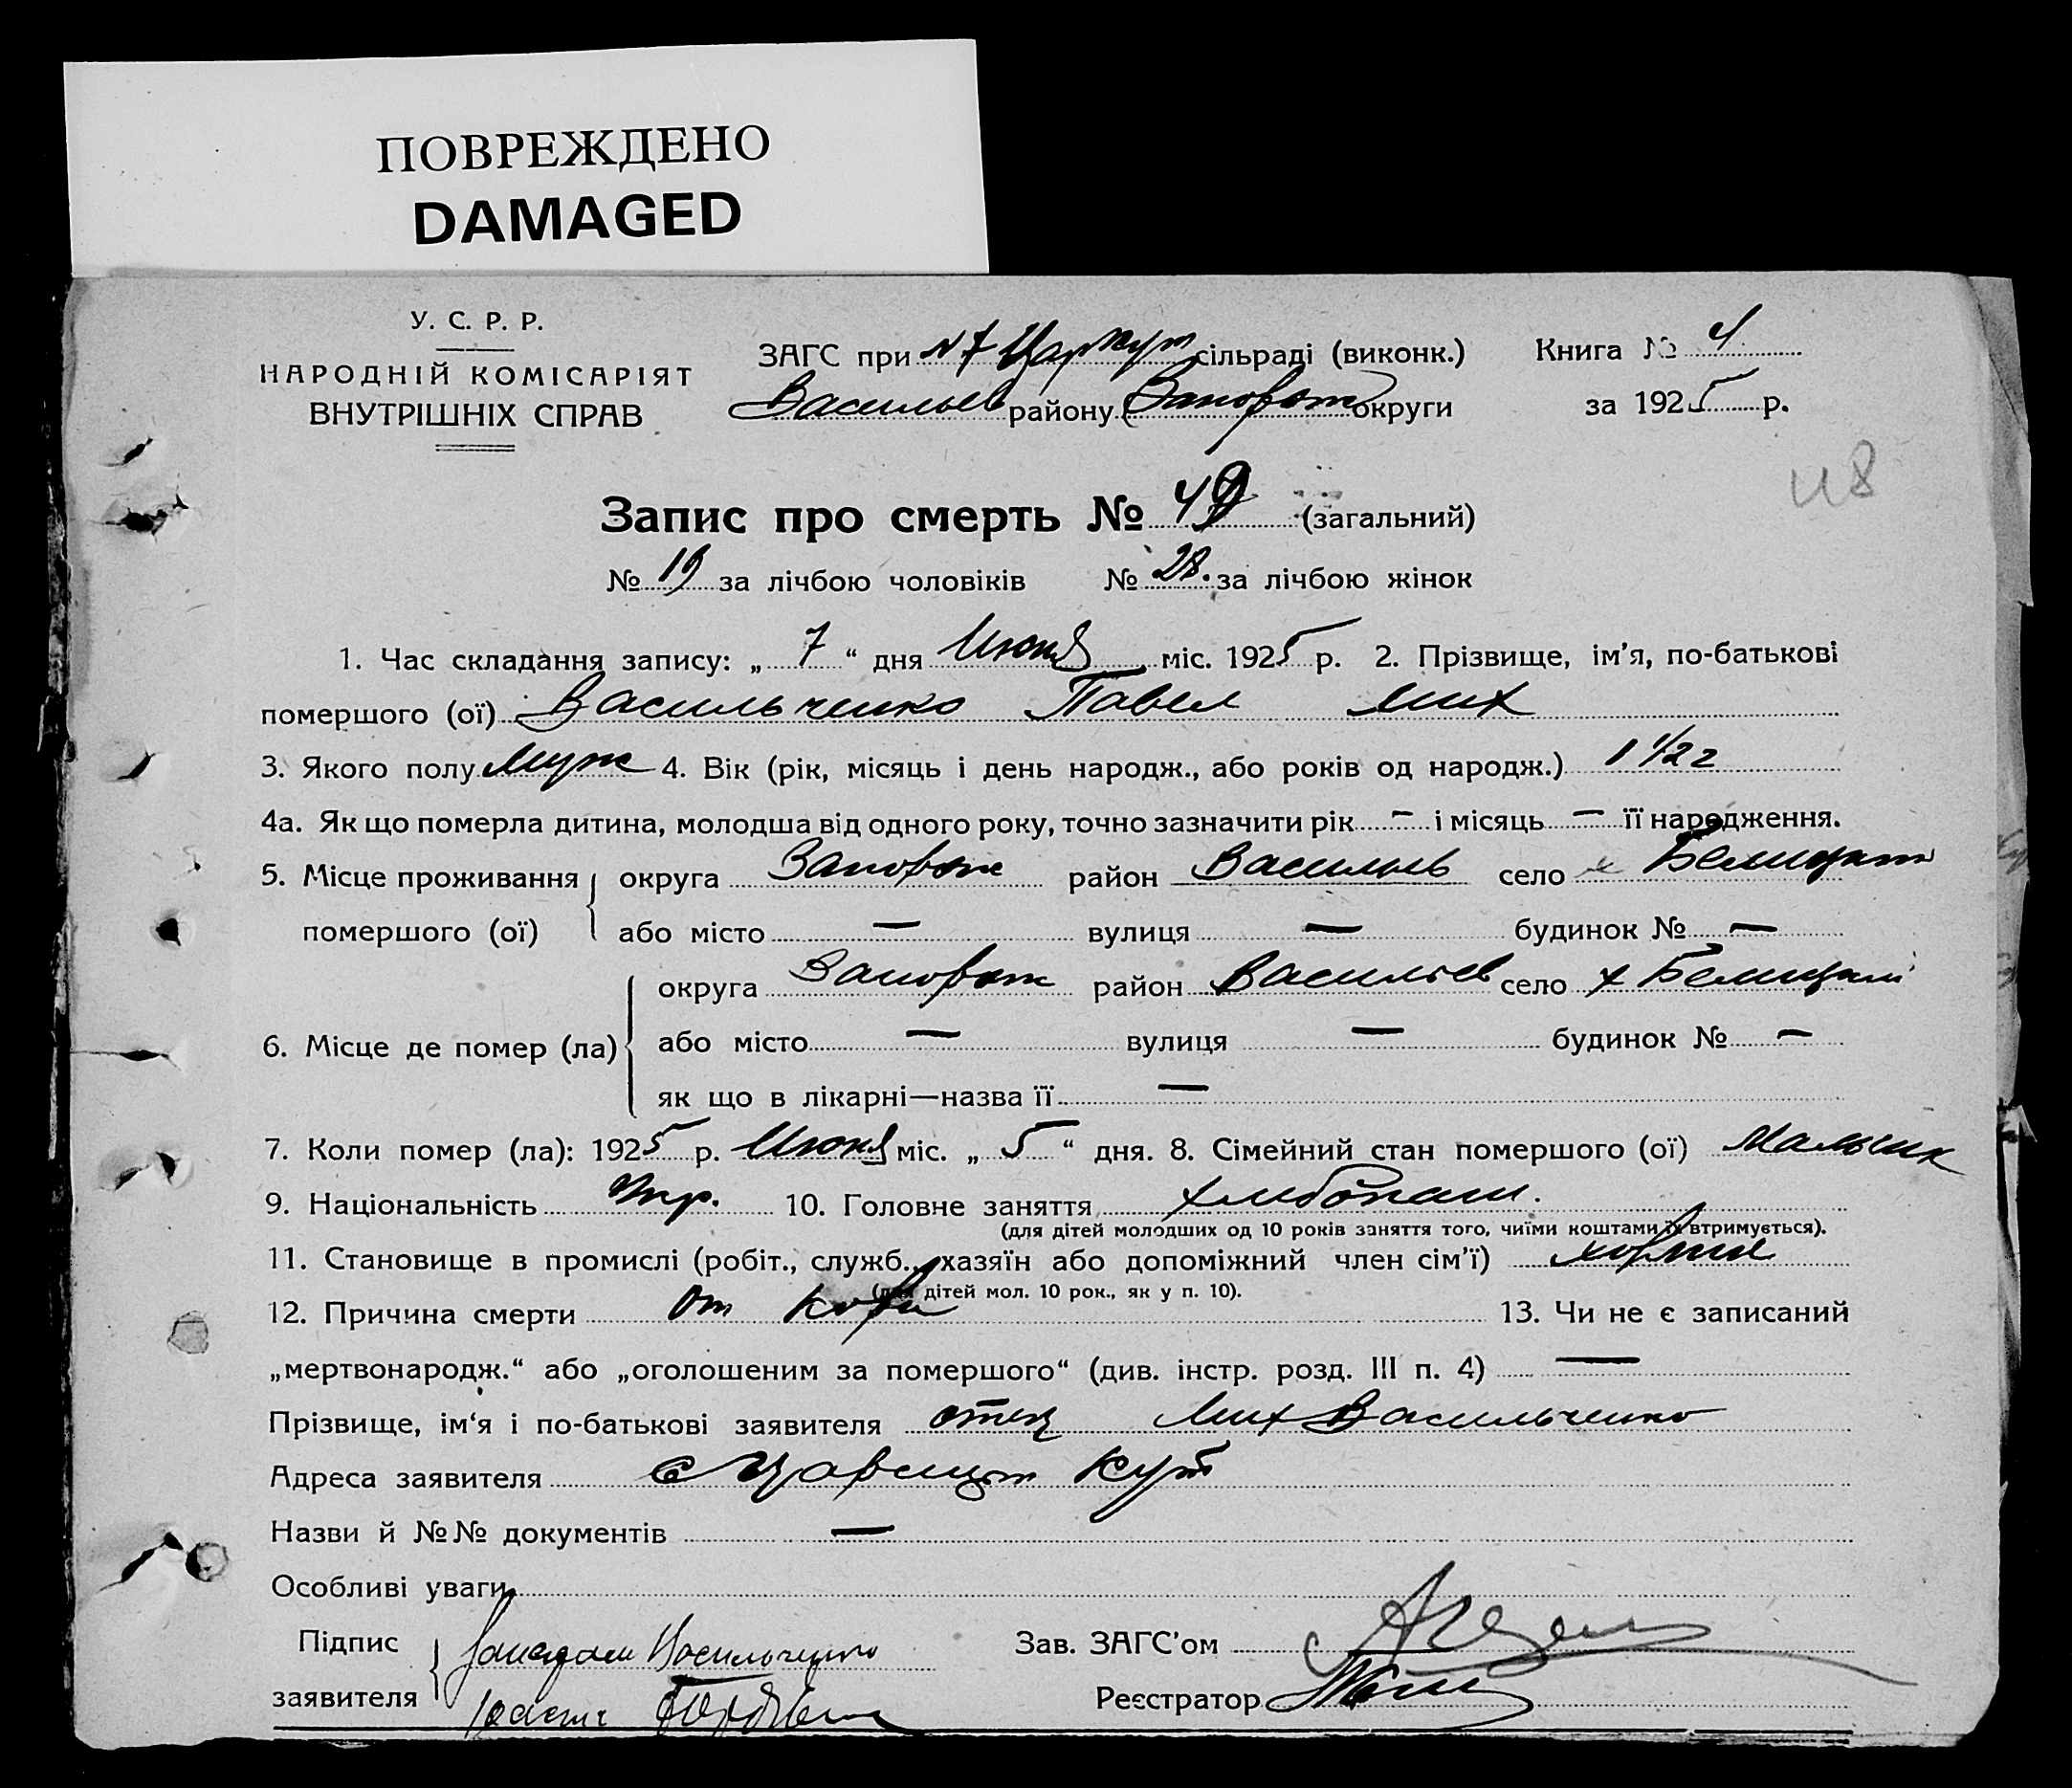 ПОВРЕЖДЕНО
DAMAGED
У. С. Р. Р.
НАРОДНІЙ КОМІСАРІЯТ
ВНУТРІШНІХ СПРАВ
ЗАГС при №7 Царкут сільраді (виконк.)
Васильев району Запорож округи
Книга № 4
за 1925 р.
118
Запис про смерть № 49 (загальний)
№ 19 за лічбою чоловіків № 28. за лічбою жінок
1. Час складання запису: „ 7 “ дня Июня міс. 1925 р. 2. Прізвище, ім’я, по-батькові
помершого (ої) Васильченко Павел Мих
3. Якого полу Муж 4. Вік (рік, місяць і день народж., або років од народж.) 1 1/2 г
4а. Як що померла дитина, молодша від одного року, точно зазначити рік — і місяць — її народження.
5. Місце проживання помершого (ої) округа Запорож район Васильев село х
або місто — вулиця — будинок № —
6. Місце де помер (ла) округа Запорож район Васильев село х
або місто — вулиця — будинок № —
як що в лікарні—назва її —
7. Коли помер (ла): 1925 р. Июня міс. „ 5 “ дня. 8. Сімейний стан помершого (ої) Мальчик
9. Національність Укр. 10. Головне заняття хлібопаш.
(для дітей молодших од 10 років заняття того, чиїми коштами їх втримується).
11. Становище в промислі (робіт., служб., хазяїн або допоміжний член сім’ї)
(для дітей мол. 10 рок., як у п. 10).
12. Причина смерти От Кори 13. Чи не є записаний
„мертвонародж.“ або „оголошеним за помершого“ (див. інстр. розд. III п. 4) —
Прізвище, ім‘я і по-батькові заявителя отец Мих Васильченко
Адреса заявителя с Царицын Кут
Назви й №№ документів —
Особливі уваги
Підпис заявителя Васильченко
Зав. ЗАГС’ом
Реєстратор